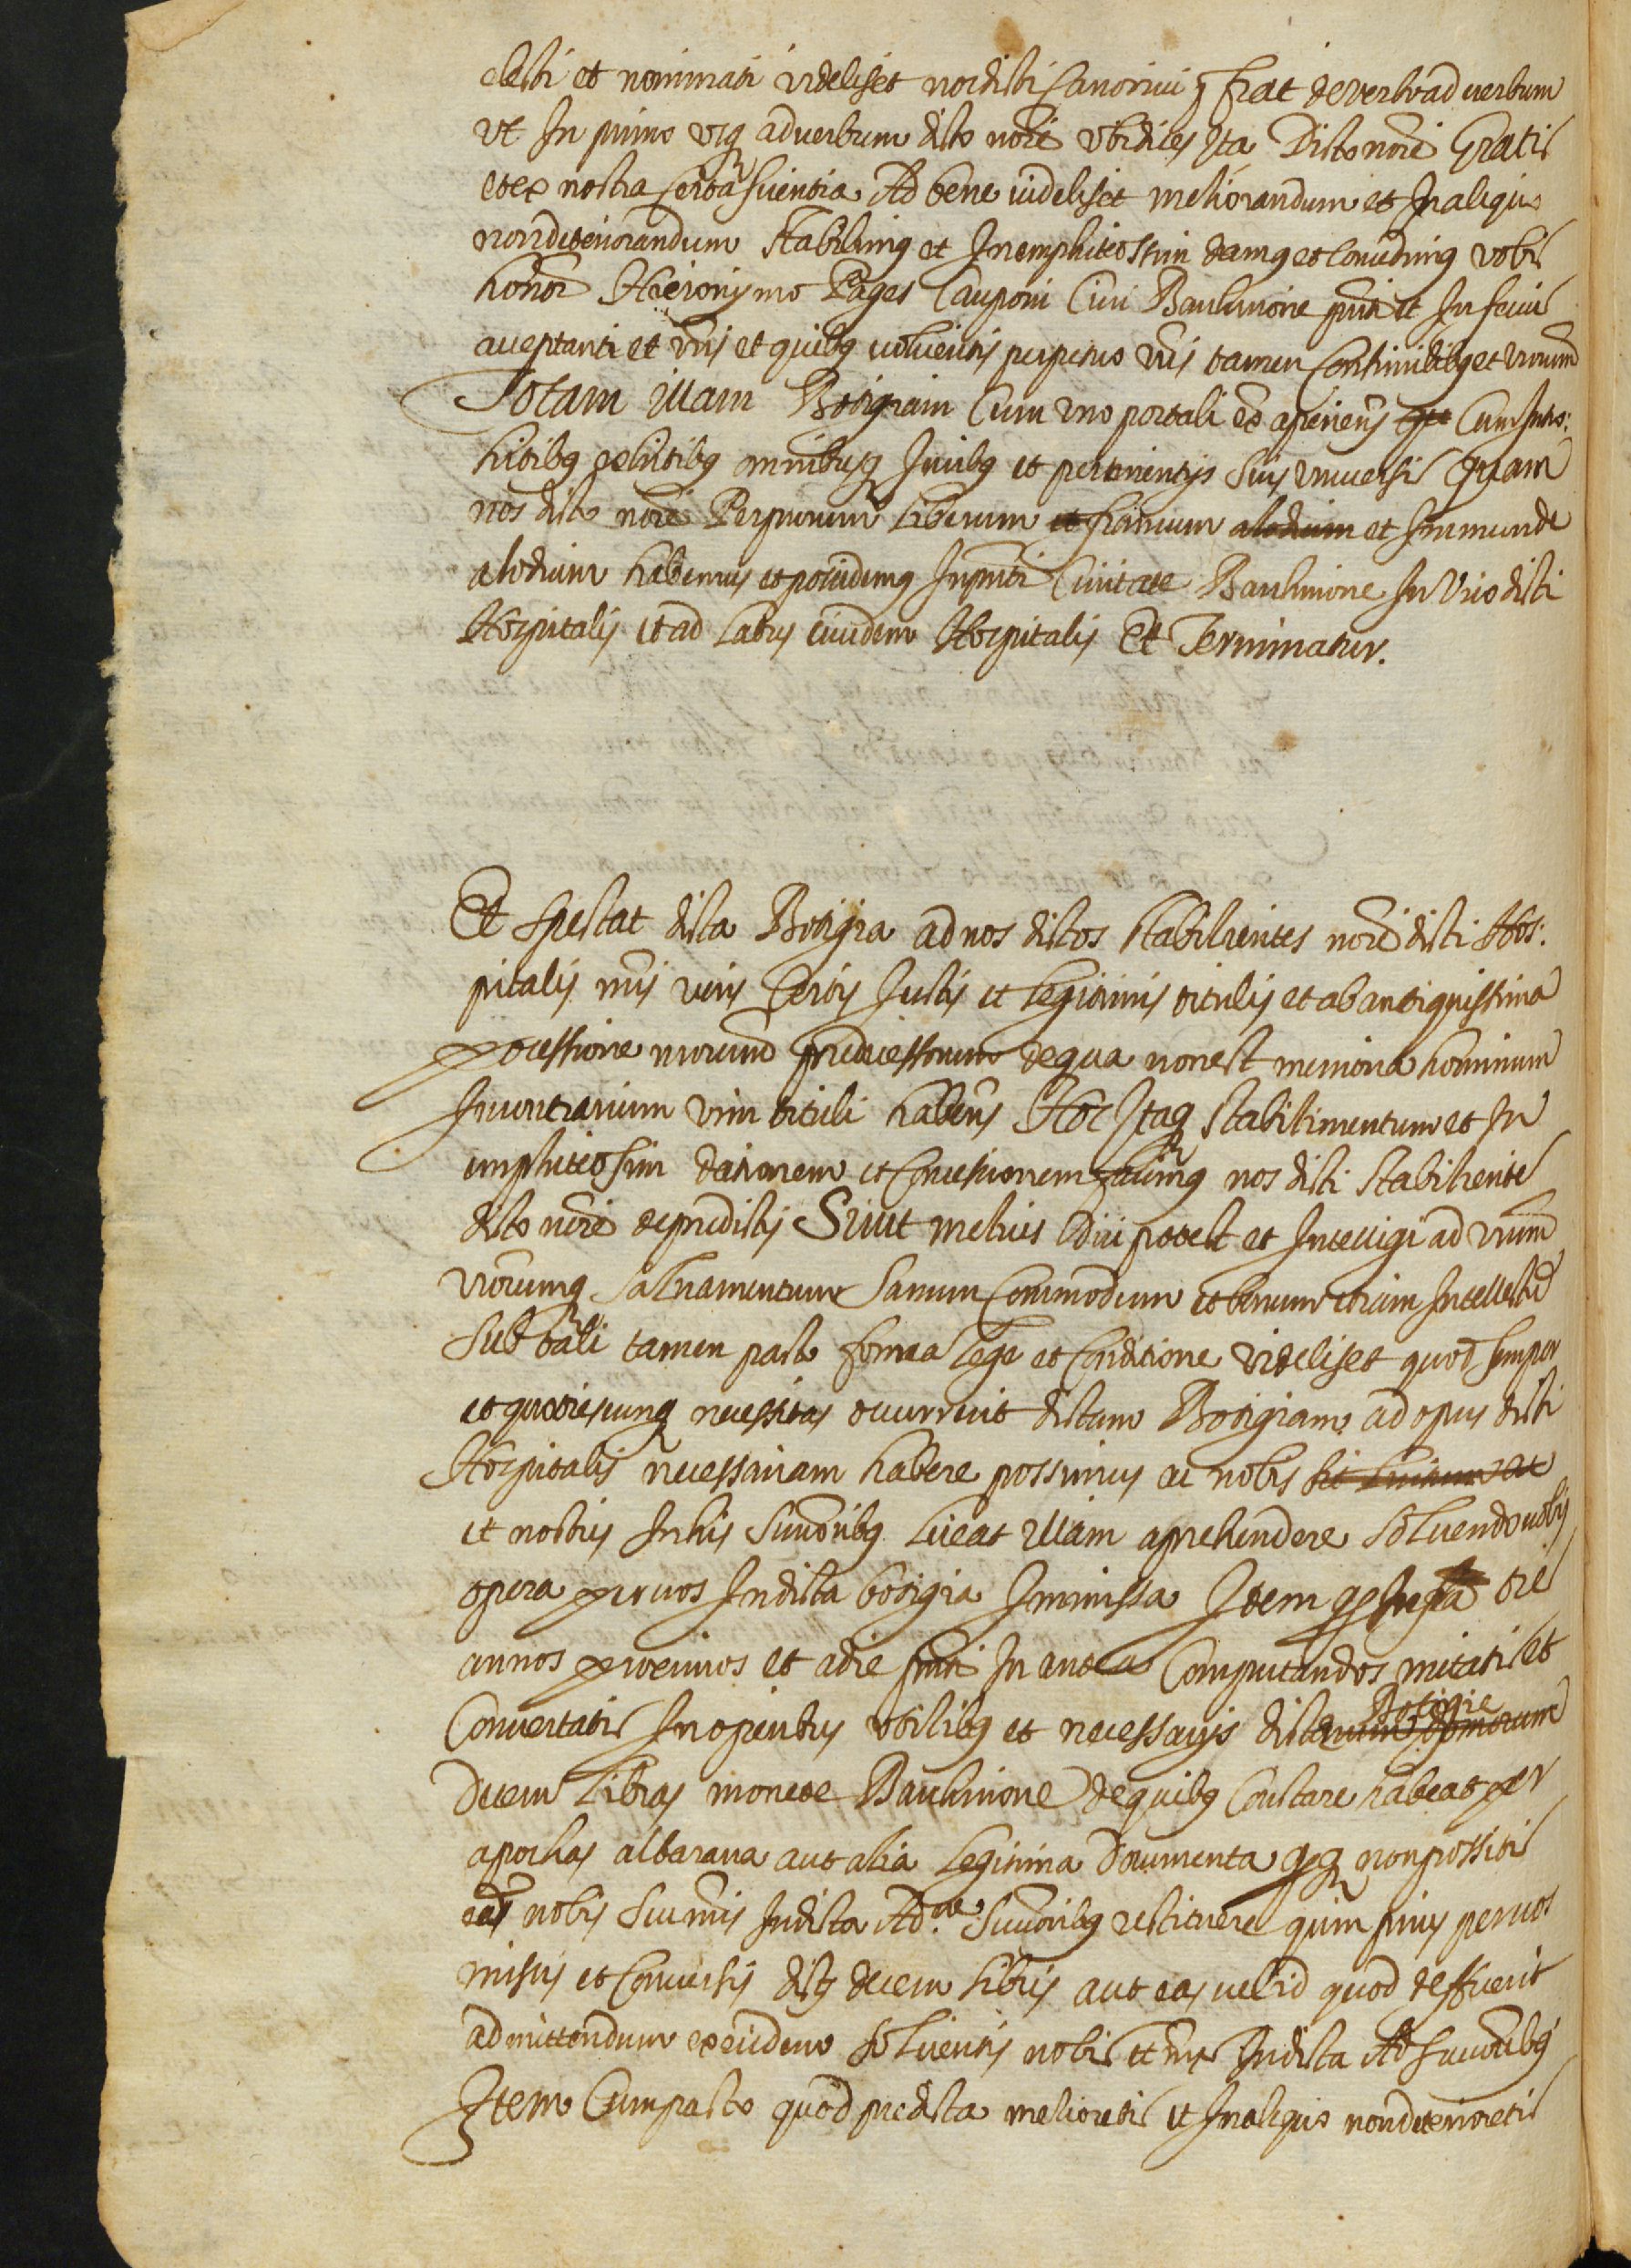 electi et nominati videliset nos dicti Canonici fiat de verbo ad verbum
vt In primo vsq ad verbum dicto noē vbi dicitis Ita Dicto noē Gratis
et ex nostra Certa scientia Ad bene videliset meliorandum et In aliquo
non deteriorandum Stabilimq et In emphiteossim damq et Concedimq vobis
honor Hieronymo Pages Cauponi Ciui Barchinone pnti et Inferius
acceptanti et vris et quibq volueritis perpetuo vris tamen Consimilibq et vrorum
Totam illam Botigiam Cum vno portali eō aperiens Cum Intro:
hitibq exhitibq omnibusq Iuribq et pertinentijs suis vniuersis Quam
nos dicto noē Per purum Liberum et francum alodium et Immune
alodium habemus et possidemq In pnti Ciuitate Barchinone In Vico dicti
Hospitalis et ad Latus eiusdem Hospitalis Et Terminatur.
Et spectat dicta Botigia ad nos dictos stabilientes noē dicti Hos:
pitalis nris veris Certis Iustis et Legitimis titulis et ab antiquissima
possessione nrorum predecessorum de qua non est memoria hominum
In contrarium vim tituli habens Hoc Itaq stabilimentum et In
emphiteosim dationem et Concessionem facimq nos dicti stabilientes
dicto noē de predictis Sicut melius Dici potest et Intelligi ad vrum
vrorumq Saluamentum Sanum Commodum et bonum etiam Intellectū
Sub tali tamen pacto forma Lege et Conditione videliset quod semper
et quotiescunq necessitas occurrerit dictam Botigiam ad opus dicti
Hospitalis necessariam habere possimus ac nobis sit Licitum ac
et nostris In his Successoribq Liceat illam aprehendere soluendo vobis
opera per vos In dicta botigia Immissa Item qd Infra tres
annos proximos et a die pnti In antea Computandos mitatis et
Conuertatis In operibus vtilibq et necessarijs dictarum domorum Botigie
decem Libras monete Barchinone de quibq Constare habeat per
apochas albarana aut alia Legitima documenta qdq non possitis
eas nobis seu nris In dicta Ad.ne Successoribq restituere quin prius per vos
missis et Conuersis dictis decem Libris aut eas vel id quod deffuerit
ad mittendum ex eisdem solueritis nobis et nris In dicta Ad Successoribq
Item Cum pacto quod predicta melioretis et In aliquo non deterioretis